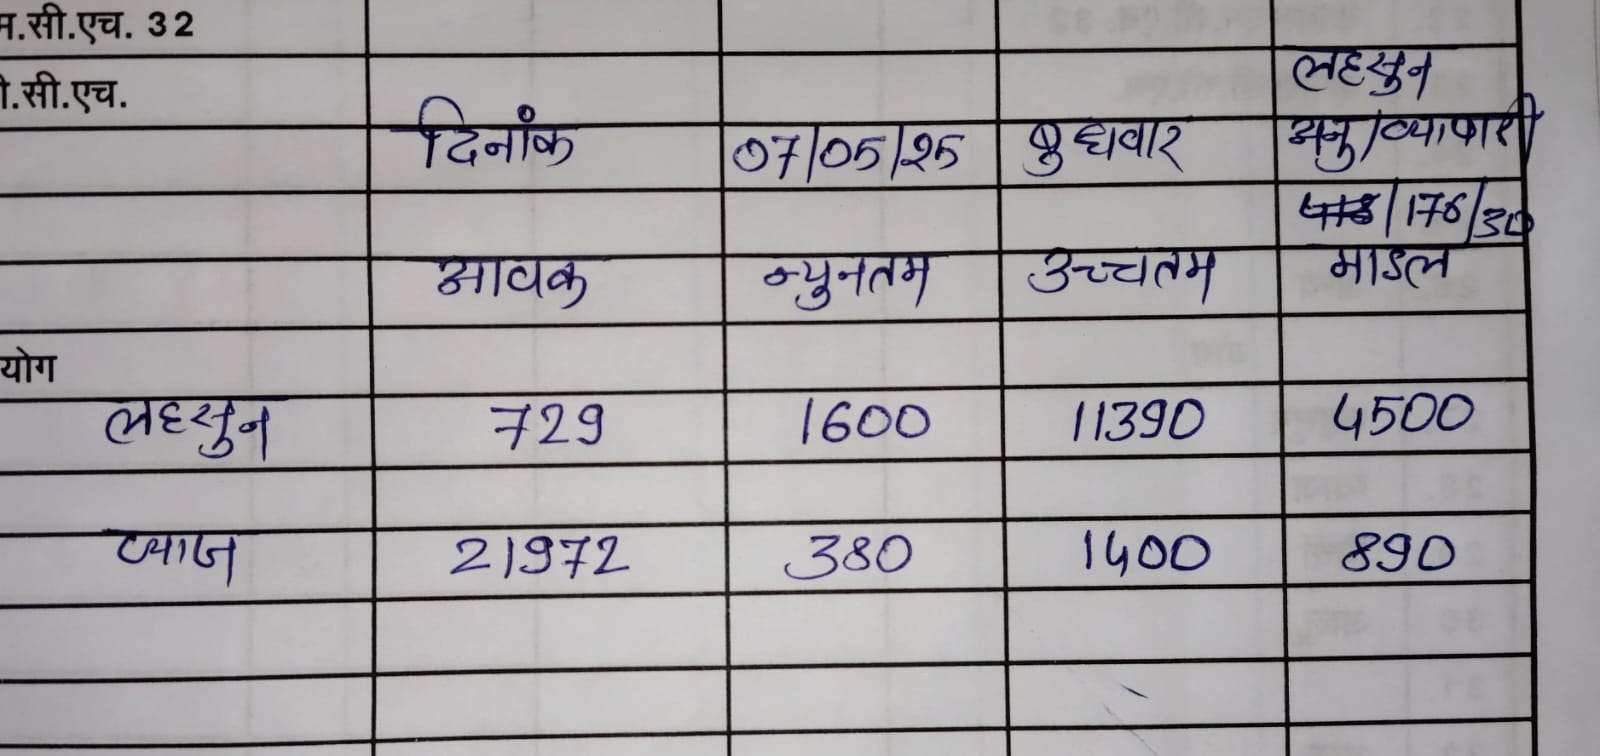 म.सी.एच. 32
लहसुन
ी.सी.एच.
दिनांक 07/05/25 बुधवार अनु/व्यापारी
/176/30
आवक न्युनतम उच्चतम माडल
योग
लहसुन 729 1600 11390 4500
प्याज 21972 380 1400 890